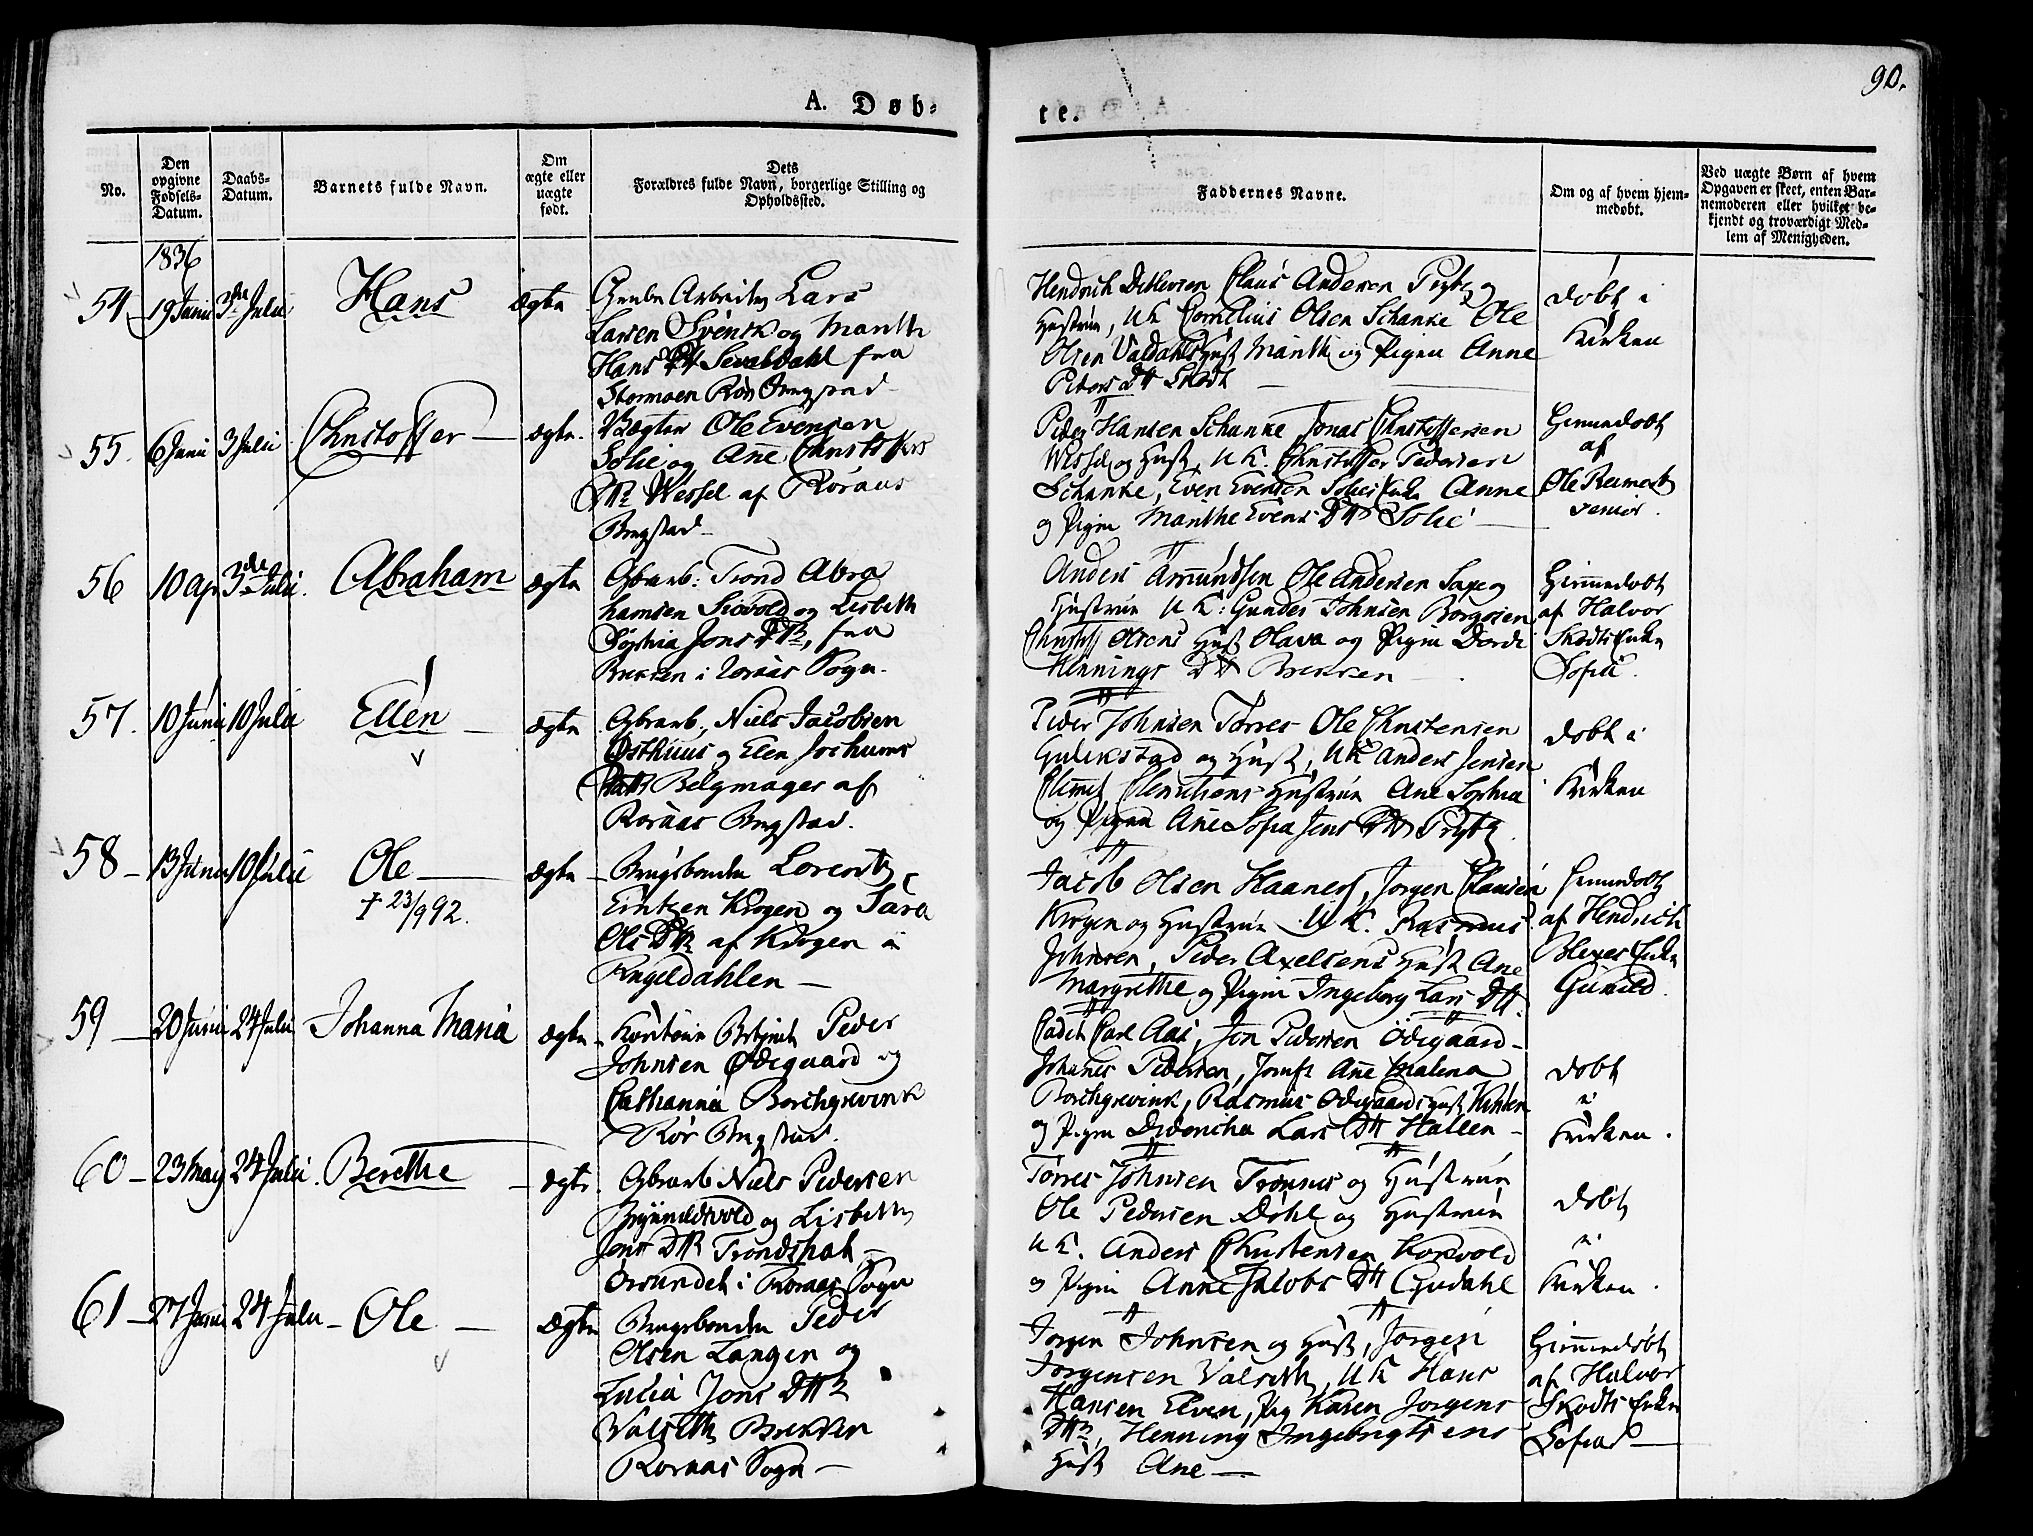 90.
A. Døb-
te.
No.
Den opgivne Fødsels-Datum.
Daabs-Datum.
Barnets fulde Navn.
Om ægte eller uægte født.
Dets Forældres fulde Navn, borgerlige Stilling og Opholdssted.
Faddernes Navne.
Om og af hvem hjem-medøbt.
Ved uægte Børn af hvem
Opgaven er skeet, enten Bar-
nemoderen eller hvilket be-
kjendt og troværdigt Med-
lem af Menigheden.
1836
54 19 Juni 3die Julii Hans ægte
Grube Arbeider Lars
Larsen Svensk og Marith
Hans Dtr fra
Stormoen Bergstad
Hendrich Detlevsen Claus Andersen Prytz og
Hustrue, UK Cornelius Olsen Schanke Ole
Olsen Valdahls Hust Marith og Pigen Anne
Peters Dtr Skott
døbt i
Kirken
55. 6 Juni 3 Julii Christoffer ægte.
Vægter Ole Evensen
Solie og Ane Christoffers
Dtr Wessel af Röraas
Bergstad
Peder Hansen Schanke, Jonas Christoffersen
Wessel og Hust, UK. Christoffer Pedersen
Schanke, Even Evensen Solies Enke Anne
og Pigen Marithe Evens Dtr Solie
Hiemmedøbt
af
Ole
senior.
56 10 Apr 3de Julii. Abraham ægte
Gbrarb: Trond Abra
hamsen Siovold og Lisbeth
Sophia Jons Dtr, fra
Brekken i Roraas Sogn.
Anders Amundsen Ole Andersen Sage og
Hustrue UK: Gunder Johnsen Borgosen
Christoff Olsens Hust Olava og Pigen Dordi
Hennings Dtr Brekken
Hiemmedøbt
af Halvor
Skotts Enke
Sofie.
57. 10 Juni 10 Julii Ellen ægte
Gbrarb, Niels Jacobsen
Østhuus og Elen Jochums
Datt Belgmager af
Roraas Bergstad.
Peder Johnsen Torres Ole Christensen
Gulikstad og Hust, UK Anders Jensen
Clemet Clemetsens Hustrue Ane Sophia
og Pigen Ane Sofia Jens Dtr Prytz
døbt i
Kirken
58 13 Juni 10 Julii Ole ægte
† 23/9 92.
Brugsbonden Lorentz
Erntzen Krogen og Sara
Ols Dtr af Krogen i
Rugeldahlen
Jacob Olsen Haanes, Jørgen Clausen
Krogen og Hustrue UK. Rasmus
Johnsen, Peder Axelsens Hust Ane
Margrethe og Pigen Ingeborg Lars Dtr.
Hiemmedøbt
af Hendrich
Enke
Gunild.
59 20 Juni 24 Julii Johanna Maria ægte
Peder
Johnsen Ødegaard og
Catharina Borchgrevink
Rør Bergstad.
Cadet Carl Aas, Jon Pedersen Ödegaard
Johanes Pedersen, Jomfr Ane Malena
Borchgrevink, Rasmus Odegaards Hust Kirsten
og Pigen Lars Dtr Hallen
døbt
i
Kirken.
60 23 May 24 Julii. Berethe ægte.
Gbrarb Niels Pedersen
Brynildsvold og Lisbeth
Jens Dtr Trondshat
Orsundet i Roraas Sogn
Torres Johnsen Tronnes og Hustrue
Ole Pedersen Dohl og Hustrue
UK. Anders Christensen Korsvold
og Pigen Anne Jacobs Dtr Gjedahl
døbt
i
Kirken.
61 27 Juni 24 Julii Ole ægte
Brugsbonden Peder
Olsen Langen og
Lucia Jons Dtr
Valseth Brekken
Roraas Sogn
Jorgen Johnsen og Hust, Jørgen
Jorgensen Valseth, UK Hans
Hansen Elven, Pig Karen Jorgens
Dtr, Henning Ingebrigtsens
Hust Ane
Hiemmedøbt
af Halvor
Skodts Enke
Sofia